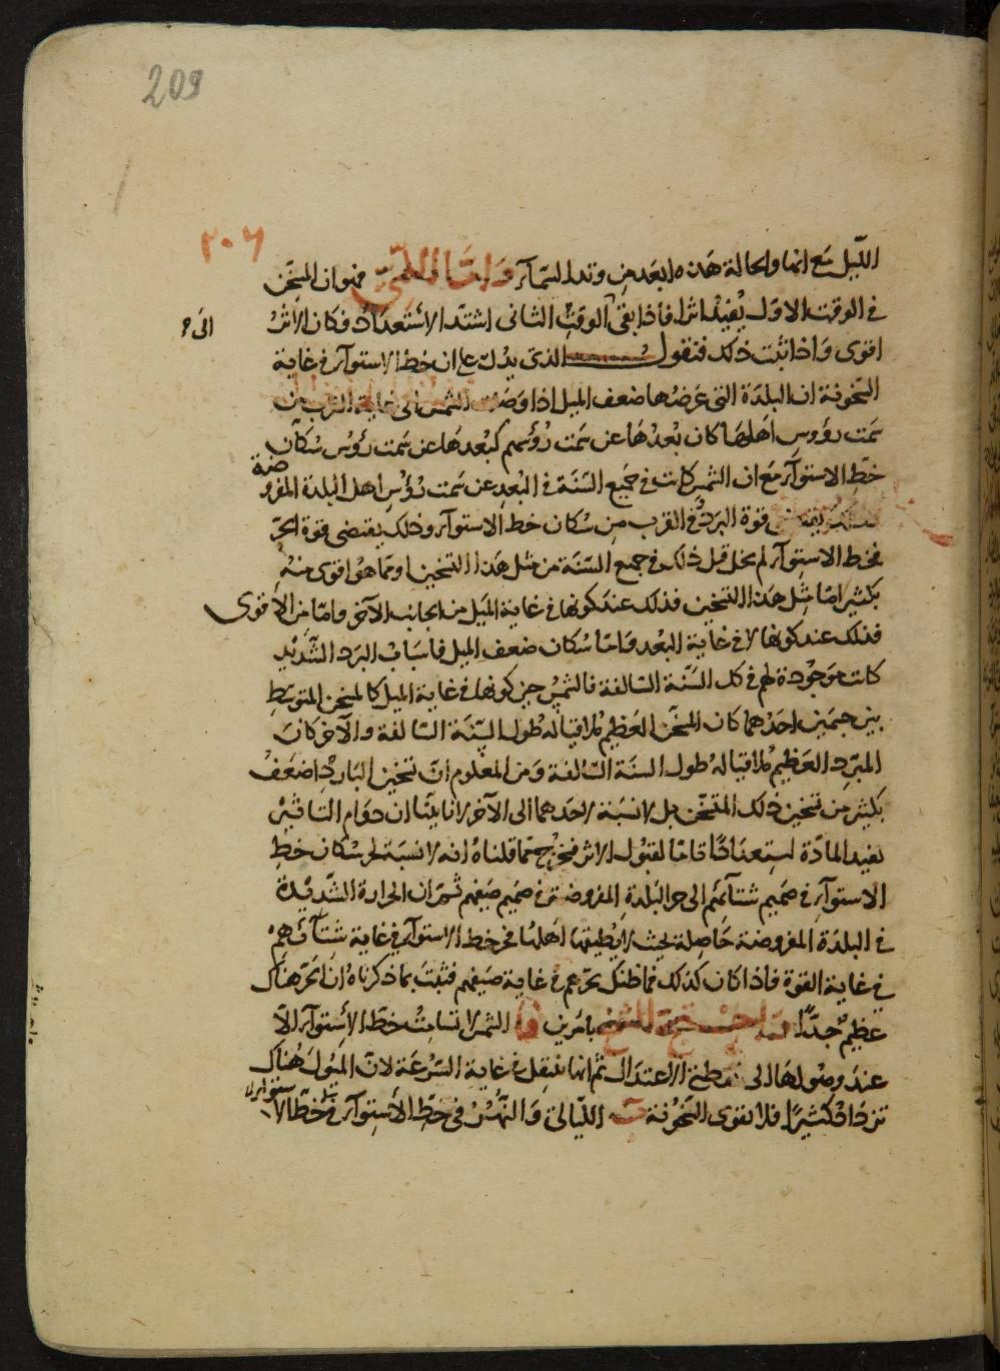 209
٢٠٦
الليل مع انها والحالة هذه ابعد من وتد السمآء وامّا اللمّىّ فهو ان المسخّن
في الوقت الاول يُفيد اثرا فاذا بقى الوقت الثانى اشتدّ الاستعداد فكان الاثر
الى
اقوى واذا ثبت ذلك فنقول الذى يدل على ان خط الاستوآء في غاية
السخونة ان البلدة التى عرضها ضعف الميل اذا وصلت الشمس الى غاية القرب من
سَمت رؤوس اهلها كان بُعدها عن سمت رؤسهم كبُعدها عن سمت رؤس سُكّان
خط الاستوآء مع ان الشمس كانت في جميع السّنَة في البُعد عن سَمت رؤس اهل البلدة المفرو
ضة
يقتضى قوة البرد في القرب من سُكان خط الاستوآء وذلك يقتضى قوة الحرّ
فخط الاستوآء لم يخل قبل ذلك في جميع السّنة من مثل هذا التسخين او مما هو اقوى منه
بكثير امّا مثل هذا التسخين فذلك عند كونها في غاية الميل من الجانب الآخر وامّا من الاقوى
فذلك عند كونها لا في غاية البعد وامّا سُكان ضعف الميل فاسباب البرد الشّديد
كانت موجُودة لهم في كل السّنة السّالفة فالشمس حين كونها في غاية الميل كالمسخن المتوسّط
بين جسمَين احدهما كان المسخّن العظيم ملاقيا له طول السّنة السّالفة والآخر كان
المبرّد العَظيم ملاقيا له طول السنة السّالفة ومن المعلوم انّ تسخين البارد اضعف
بكثير من تسخين ذلك المتسخّن بل لا نسبة لاحدهما الى الآخر لانا بيّنا ان دوَام التاثير
يفيد المادّة استعدَادًا تامًا لقبول الاثر فخرج ممّا قلناهُ انه لا نسبَة لحر سُكان خط
الاستوآءِ في صميم شتآئهم الى حر البلدةِ المفروضة في صميم صَيفهم ثم ان الحرارة الشّديدة
في البلدَة المفروضة حَاصِلة بحيث لا يُطيقها اهلها فحر خط الاستوآء في غاية شتآئهم
في غاية القوة فاذا كان كذلك فما ظنك بحرّهم في غاية صيفهم فثبت بما ذكرناه ان الحرّ هناك
عظيم جدّا بامرين الشمس لا تسامتُ خط الاستوآء الا
عند وصُولها الى نقطتي الاعتدال ثم انها تنتقل في غاية السّرعة لانّ الميُول هُناك
تزدَاد كثيرًا فلا تقوى السّخونة الليالى والنّهُر في خط الاستوآء